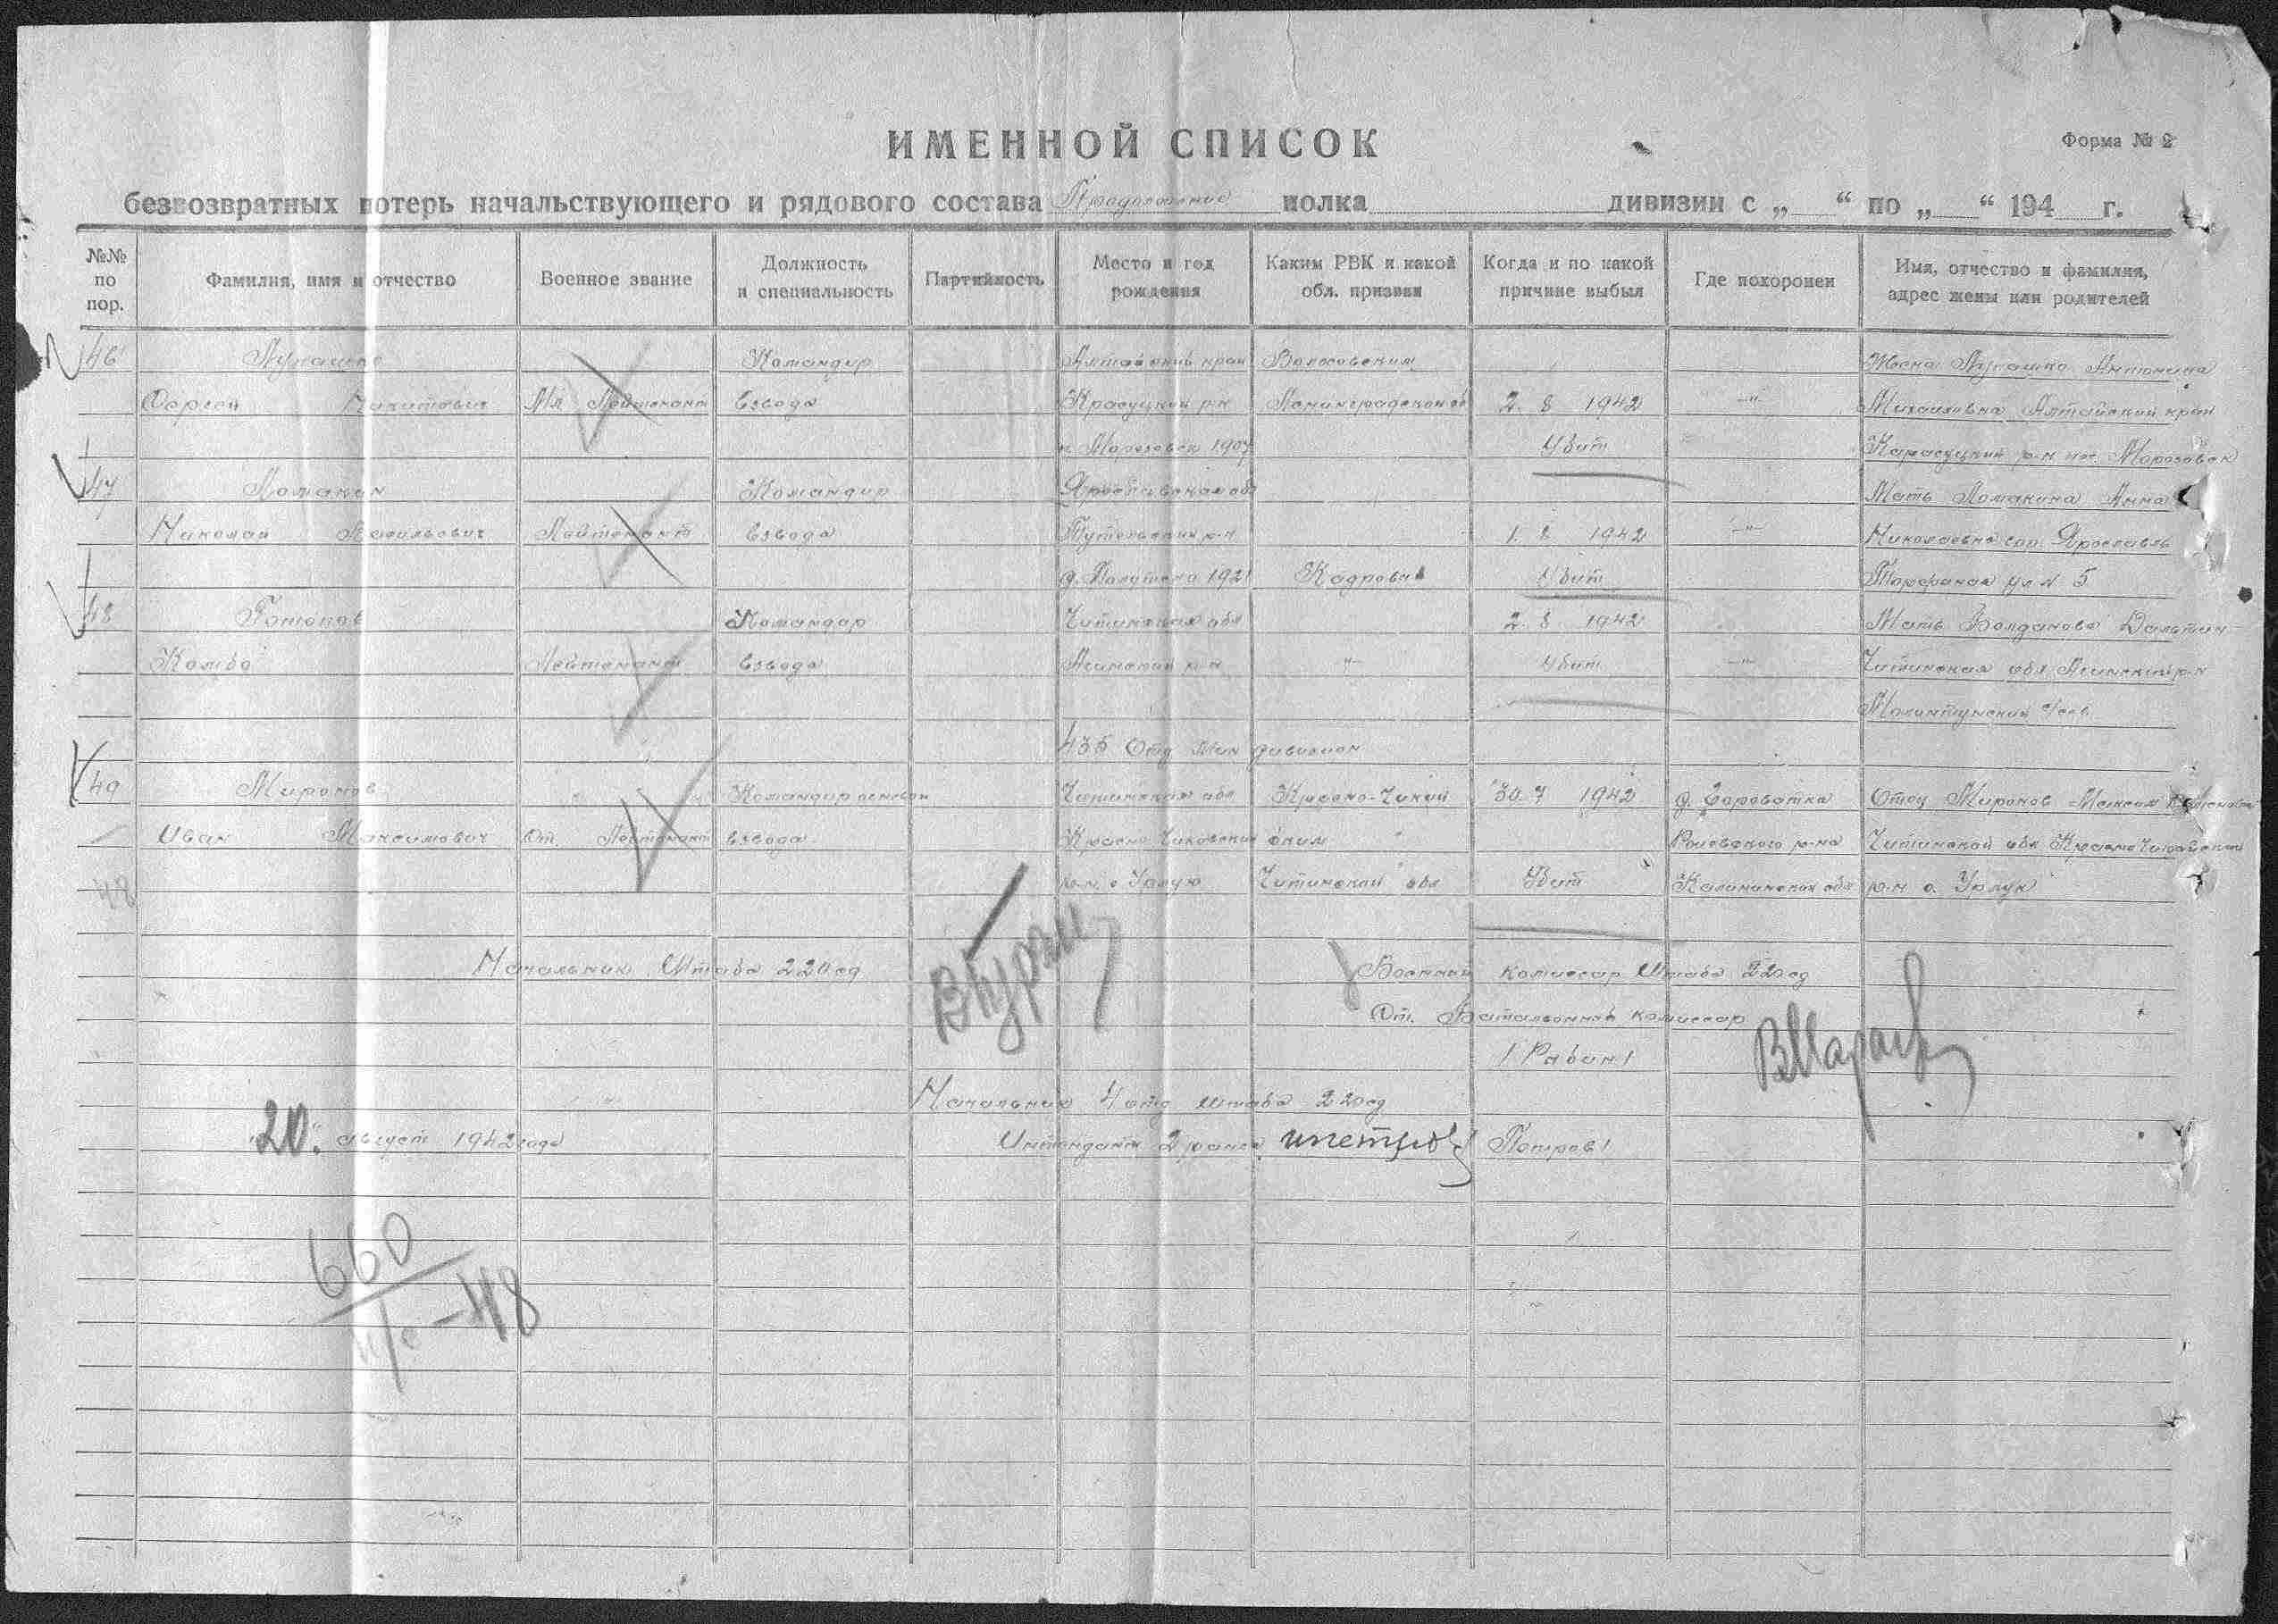 ИМЕННОЙ СПИСОК
Форма № 2
безвозвратных потерь начальствующего и рядового состава Продолжение полка дивизии с „ “ по „ “ 194 г.
№№ по пор.
Фамилия, имя и отчество
Военное звание
Должность и специальность
Партийность
Место и год рождения
Каким РВК и какой обл. призван
Когда и по какой причине выбыл
Где похоронен
Имя, отчество и фамилия, адрес жены или родителей
46 Лукашко Командир Алтайский край Волховским Жена Лукашко Антонина
Сергей Никитович Мл Лейтенант взвода р-н Ленинградской об 2. 8 1942 -"- Михайловна Алтайский край
1907 Убит р-н пос. Морозовск
47 Ломакин Командир Ярославская обл Мать Ломакина Анна
Николай Васильевич Лейтенант взвода р-н 1. 8 1942 -"- Николаевна гор. Ярославль
1921 Кадровый Убит ул N 5
48 Командир Читинская обл 2. 8 1942 Мать
Лейтенант взвода Агинский р-н -"- Убит -"- Читинская обл Агинский р-н
с/сов
435 Отд Мин дивизион
49 Миронов Командир Читинская обл Красно-Чикой 30. 7 1942 д. Отец Миронов Максим
Иван Максимович Ст. Лейтенант взвода Красно Чикойский ским р-на Читинской обл
48 р-н с Урлук Читинской обл Убит Калининская обл р-н с. Урлук
Начальник Штаба 220 сд Военный комиссар Штаба 220 сд
Ст. Батальонный комиссар
/ Рабин /
Начальник 4 отд штаба 220 сд
"20" август 1942 года Интендант 2 ранга /Петров/
660
н/с - 48